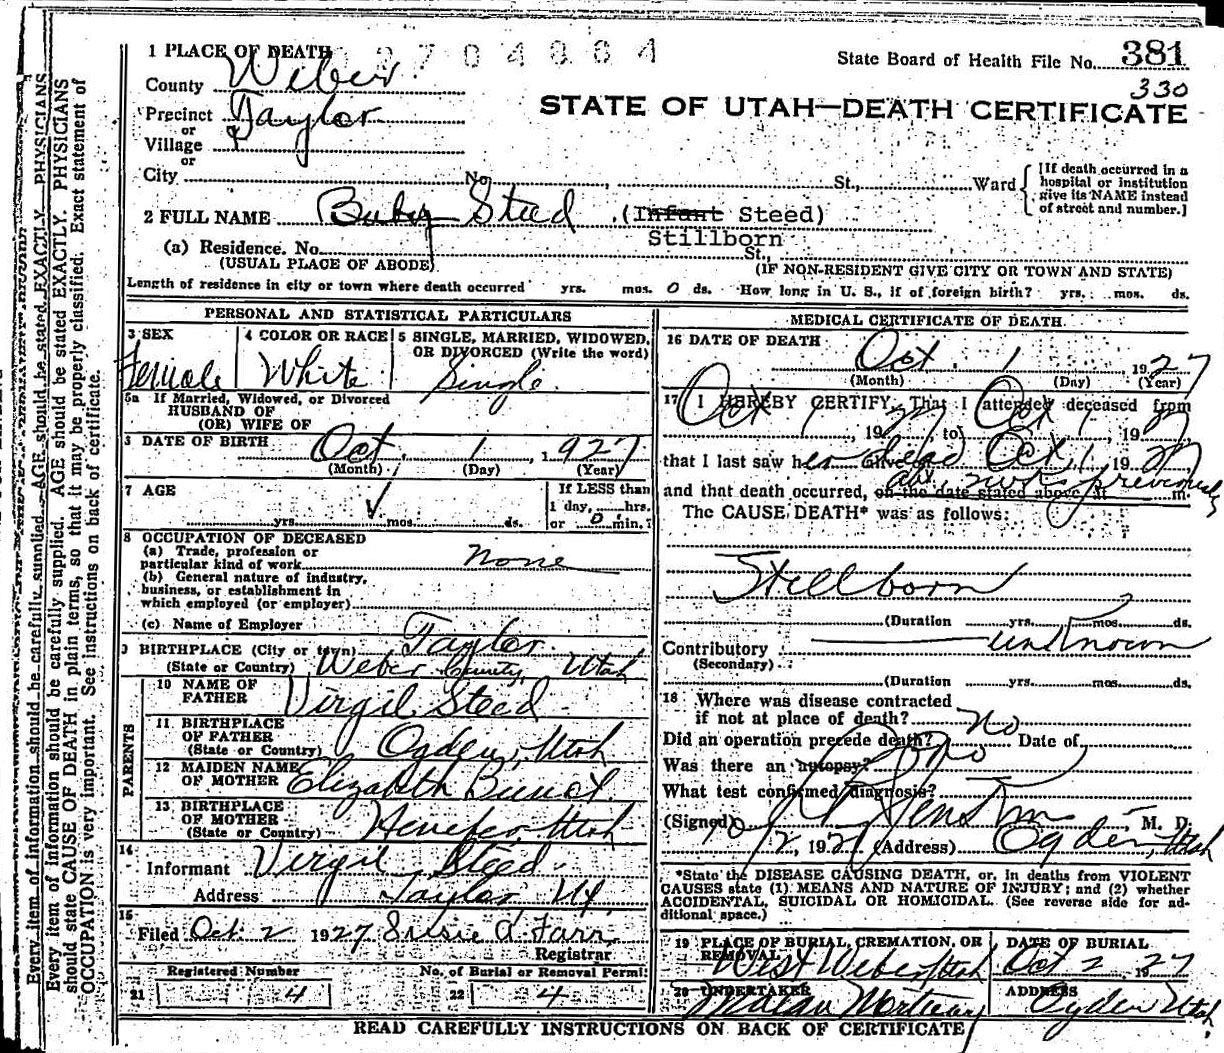 1 PLACE OF DEATH
State Board of Health File No. 381
330
County Weber
STATE OF UTAH—DEATH CERTIFICATE
Precinct Taylor
or
Village
or
City No. , St., Ward
[If death occurred in a
hospital or institution
give its NAME instead
of street and number.]
2 FULL NAME Baby Steed (Infant Steed)
Stillborn
(a) Residence. No. St.,
(USUAL PLACE OF ABODE) (IF NON-RESIDENT GIVE CITY OR TOWN AND STATE)
Length of residence in city or town where death occurred yrs. mos. 0 ds. How long in U. S., if of foreign birth? yrs. mos. ds.
PERSONAL AND STATISTICAL PARTICULARS
3 SEX
Female
4 COLOR OR RACE
White
5 SINGLE, MARRIED, WIDOWED,
OR DIVORCED (Write the word)
Single
5a If Married, Widowed, or Divorced
HUSBAND OF
(OR) WIFE OF
DATE OF BIRTH Oct. 1, 1927
(Month) (Day) (Year)
7 AGE
yrs. mos. ds.
If LESS than
1 day, hrs.
or 0 min.?
8 OCCUPATION OF DECEASED
(a) Trade, profession or
particular kind of work None
(b) General nature of industry,
business, or establishment in
which employed (or employer)
(c) Name of Employer
9 BIRTHPLACE (City or town) Taylor
(State or Country) Weber County, Utah
PARENTS
10 NAME OF
FATHER Virgil Steed
11 BIRTHPLACE
OF FATHER
(State or Country) Ogden, Utah
12 MAIDEN NAME
OF MOTHER Elizabeth
13 BIRTHPLACE
OF MOTHER
(State or Country) Utah
14
Informant Virgil Steed
Address Taylor Ut.
15
Filed Oct. 2 1927 Susie Q. Farr
Registrar
Registered Number
21 4
No. of Burial or Removal Permit
22 4
MEDICAL CERTIFICATE OF DEATH
16 DATE OF DEATH
Oct. 1, 1927
(Month) (Day) (Year)
17 I HEREBY CERTIFY, That I attended deceased from
Oct 1, 1927, to Oct 1 1927
that I last saw her dead alive on Oct. 1, 1927
and that death occurred, on the date stated above at m.
previously
The CAUSE DEATH* was as follows:
Stillborn
(Duration yrs. mos. ds.
Contributory unknown
(Secondary)
(Duration yrs. mos. ds.
18 Where was disease contracted
if not at place of death? No
Did an operation precede death? No Date of
Was there an autopsy?
What test confirmed diagnosis?
(Signed) M. D.
10/2, 1927 (Address) Ogden, Utah
*State the DISEASE CAUSING DEATH, or, in deaths from VIOLENT
CAUSES state (1) MEANS AND NATURE OF INJURY; and (2) whether
ACCIDENTAL, SUICIDAL OR HOMICIDAL. (See reverse side for ad-
ditional space.)
19 PLACE OF BURIAL, CREMATION, OR
REMOVAL
West Weber, Utah
DATE OF BURIAL
Oct 2 1927
20 UNDERTAKER
ADDRESS
Ogden Utah
READ CAREFULLY INSTRUCTIONS ON BACK OF CERTIFICATE
Every item of information should be carefully supplied. AGE should be stated EXACTLY. PHYSICIANS
Every item of information should be carefully supplied. AGE should be stated EXACTLY. PHYSICIANS
should state CAUSE OF DEATH in plain terms, so that it may be properly classified. Exact statement of
OCCUPATION is very important. See instructions on back of certificate.